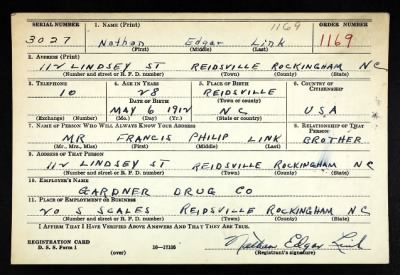 1169
SERIAL NUMBER 1. NAME (Print) ORDER NUMBER
3027 Nathan Edgar Link 1169
(First) (Middle) (Last)
2. ADDRESS (Print)
112 LINDSEY ST REIDSVILLE ROCKINGHAM NC
(Number and street or R. F. D. number) (Town) (County) (State)
3. TELEPHONE 4. AGE IN YEARS 5. PLACE OF BIRTH 6. COUNTRY OF CITIZENSHIP
10 28 REIDSVILLE
DATE OF BIRTH (Town or county)
MAY 6 1912 NC USA
(Mo.) (Day) (Yr.) (State or country)
7. NAME OF PERSON WHO WILL ALWAYS KNOW YOUR ADDRESS 8. RELATIONSHIP OF THAT PERSON
MR FRANCIS PHILIP LINK BROTHER
(Mr., Mrs., Miss) (First) (Middle) (Last)
9. ADDRESS OF THAT PERSON
112 LINDSEY ST REIDSVILLE ROCKINGHAM NC
(Number and street or R. F. D. number) (Town) (County) (State)
10. EMPLOYER'S NAME
GARDNER DRUG CO
11. PLACE OF EMPLOYMENT OR BUSINESS
20 S SCALES REIDSVILLE ROCKINGHAM NC
(Number and street or R. F. D. number) (Town) (County) (State)
I AFFIRM THAT I HAVE VERIFIED ABOVE ANSWERS AND THAT THEY ARE TRUE.
REGISTRATION CARD
D. S. S. Form 1 (over) 16—17105 Nathan Edgar Link
(Registrant's signature)